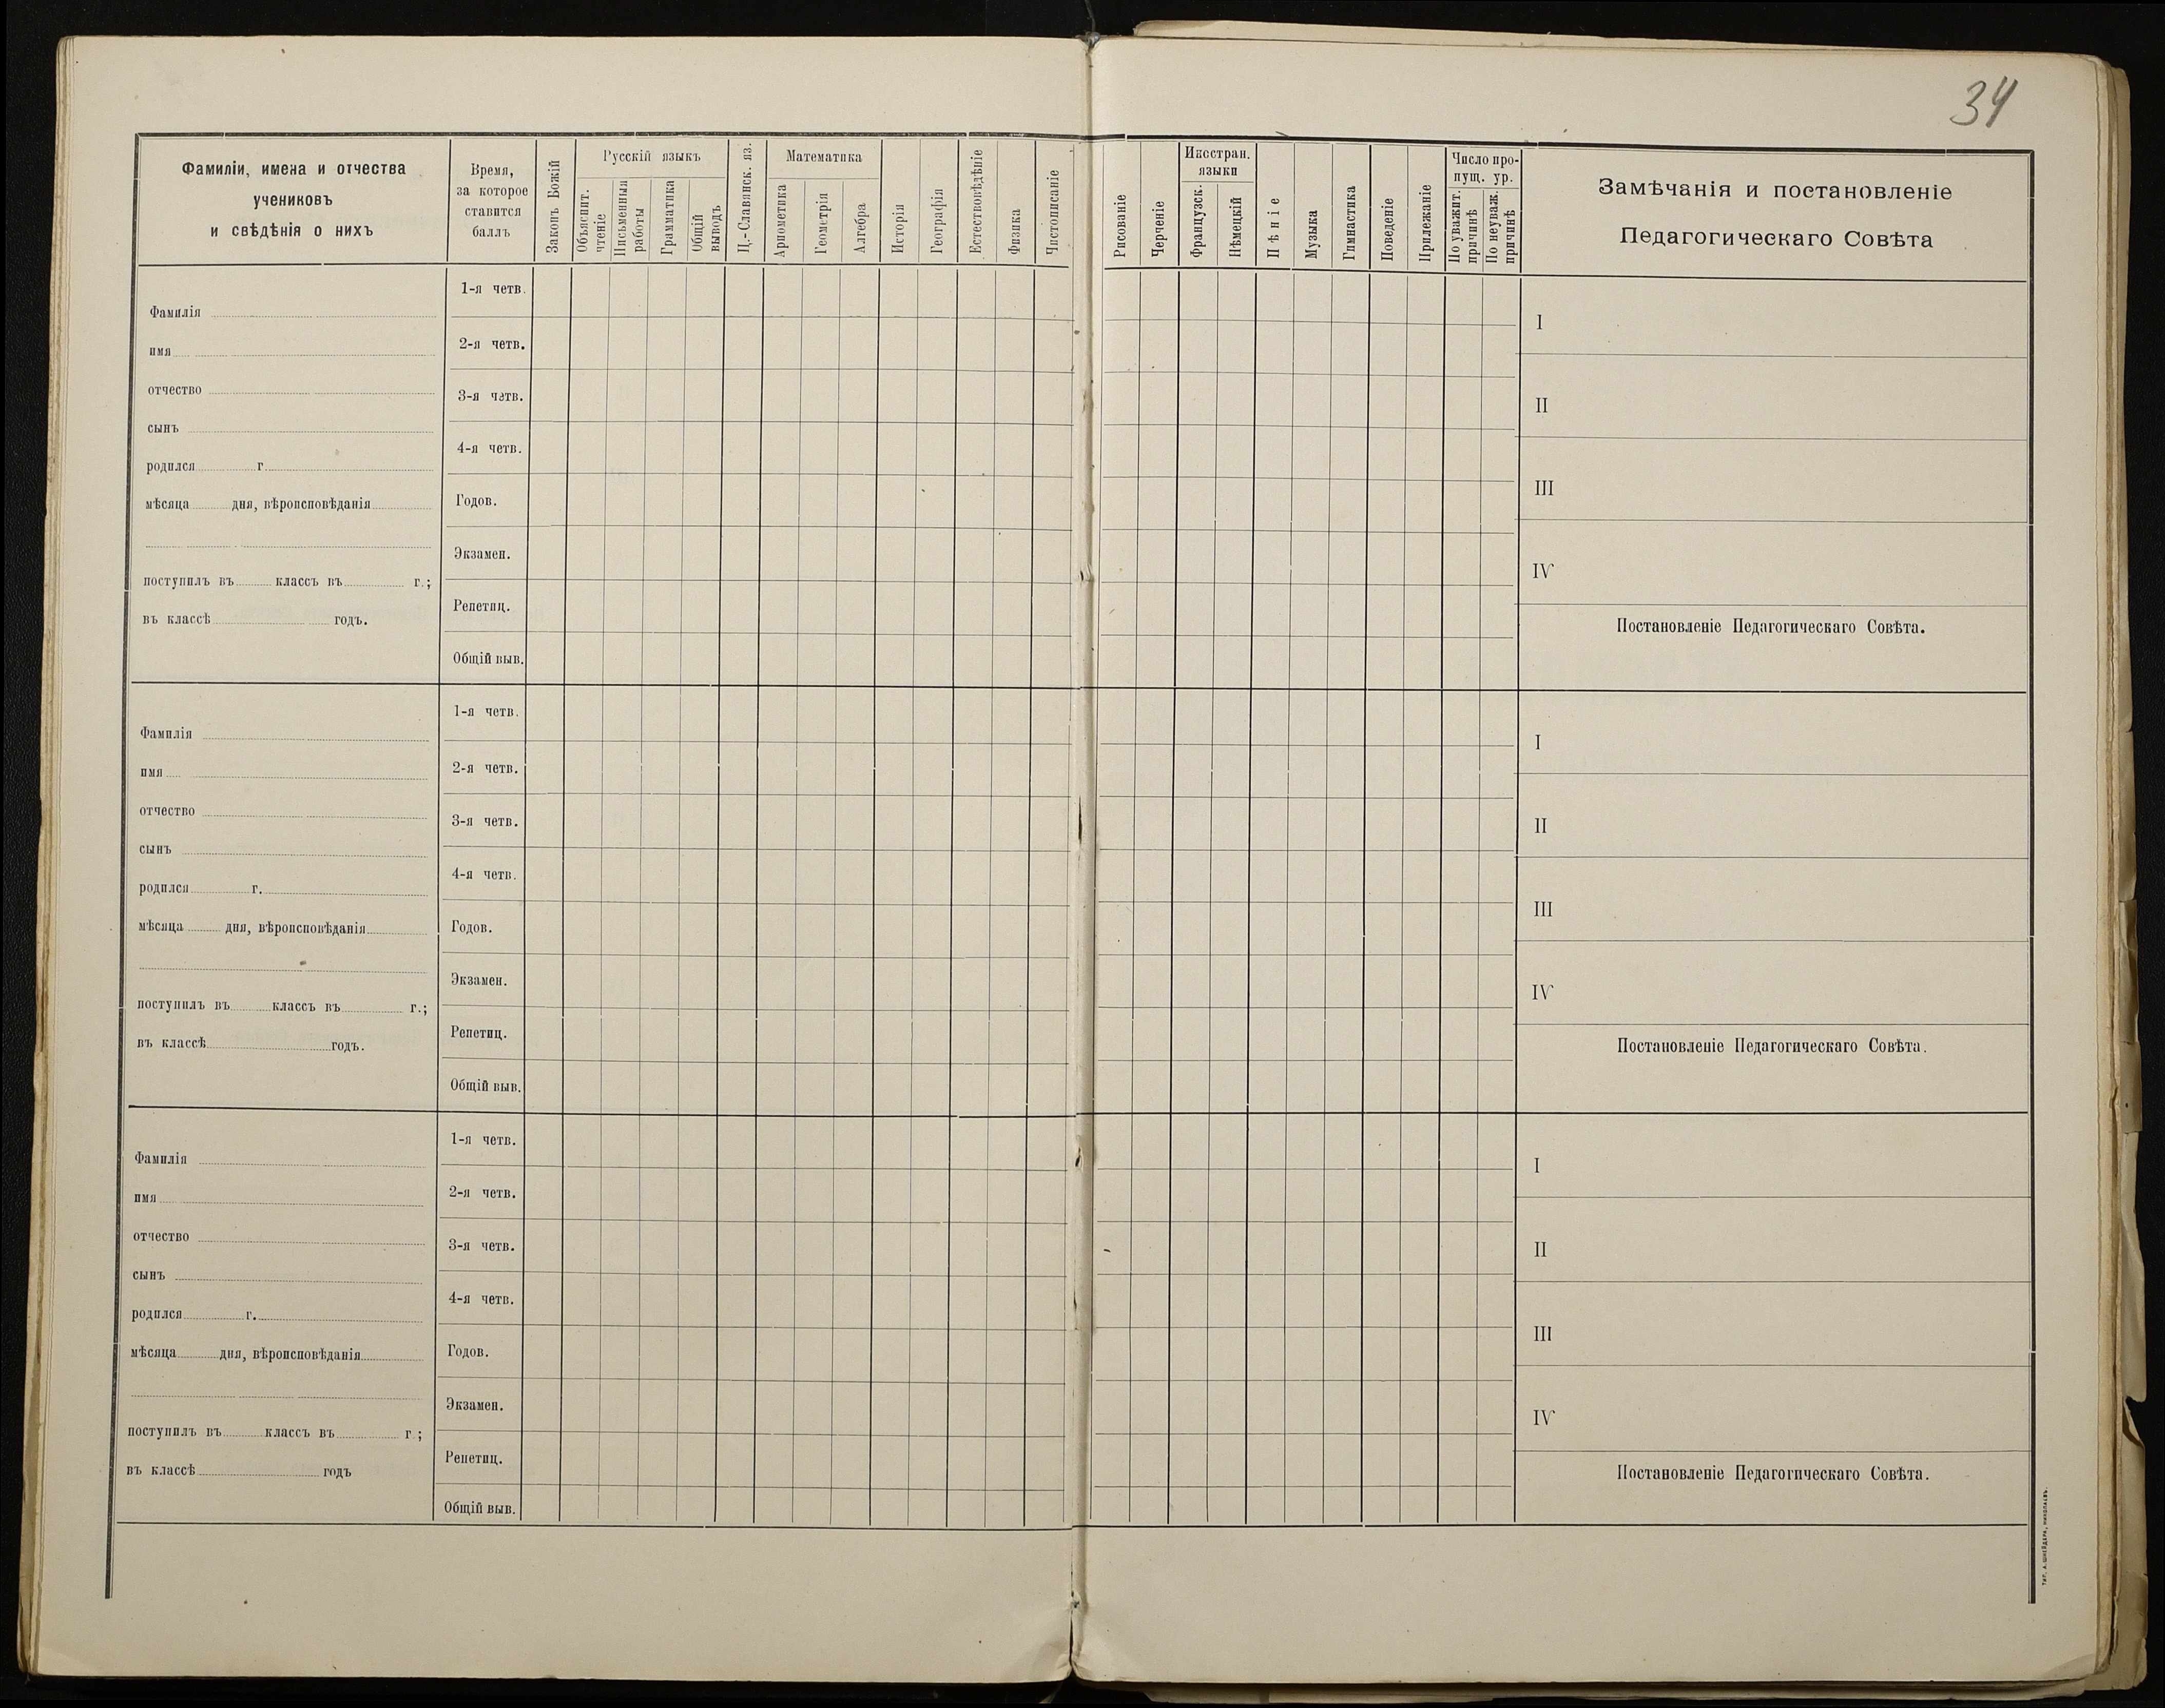 34
Фамиліи, имена и отчества
учениковъ
и свѣдѣнія о нихъ
Время,
за которое
ставится
баллъ
Законъ Божій
Русскій языкъ
Объяснит.
чтеніе
Письменныя
работы
Грамматика
Общій
выводъ
Ц.-Славянск. яз.
Математика
Ариѳметика
Геометрія
Алгебра
Исторія
Географія
Естествовѣдѣніе
Физика
Чистописаніе
Рисованіе
Черченіе
Иностран.
языки
Французск.
Нѣмецкій
Пѣніе
Музыка
Гимнастика
Поведеніе
Прилежаніе
Число про-
пущ. ур.
По уважит.
причинѣ
По неуваж.
причинѣ
Замѣчанія и постановленіе
Педагогическаго Совѣта
Фамилія
имя
отчество
сынъ
родился г.
мѣсяца дня, вѣроисповѣданія
поступилъ въ классъ въ г.;
въ классѣ годъ.
1-я четв.
2-я четв.
3-я четв.
4-я четв.
Годов.
Экзамен.
Репетиц.
Общій выв.
I
II
III
IV
Постановленіе Педагогическаго Совѣта.
Фамилія
имя
отчество
сынъ
родился г.
мѣсяца дня, вѣроисповѣданія
поступилъ въ классъ въ г.;
въ классѣ годъ.
1-я четв.
2-я четв.
3-я четв.
4-я четв.
Годов.
Экзамен.
Репетиц.
Общій выв.
I
II
III
IV
Постановленіе Педагогическаго Совѣта.
Фамилія
имя
отчество
сынъ
родился г.
мѣсяца дня, вѣроисповѣданія
поступилъ въ классъ въ г.;
въ классѣ годъ
1-я четв.
2-я четв.
3-я четв.
4-я четв.
Годов.
Экзамен.
Репетиц.
Общій выв.
I
II
III
IV
Постановленіе Педагогическаго Совѣта.
ТИП. А. ШНЕЙДЕРА, НИКОЛАЕВЪ.